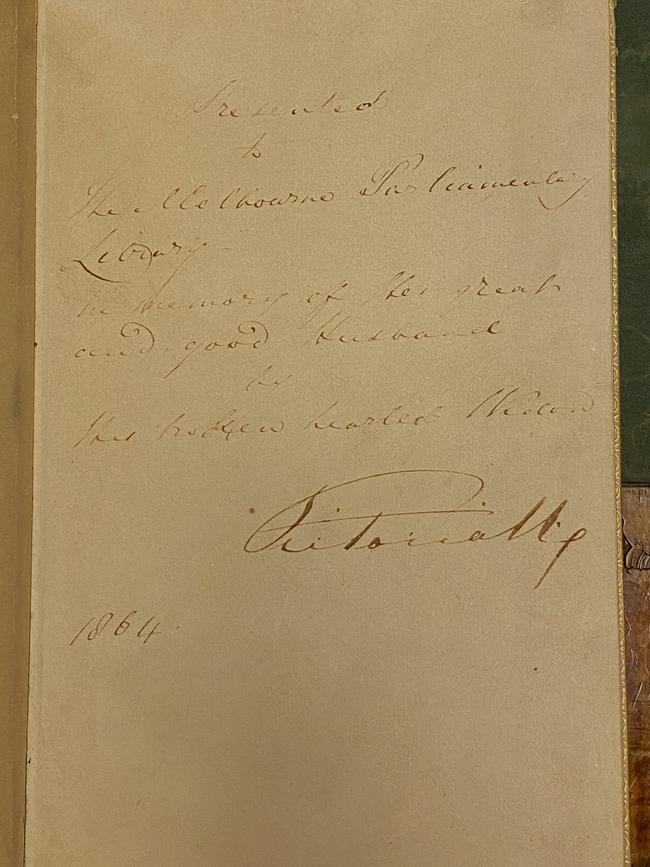 Presented
to
The Melbourne Parliamentary
Library
in memory of Her great
and good Husband
by
His broken hearted Widow
Victoria R
1864.